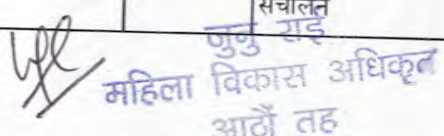 संचालन
जुनु राई
महिला विकास अधिकृत
आठौं तह